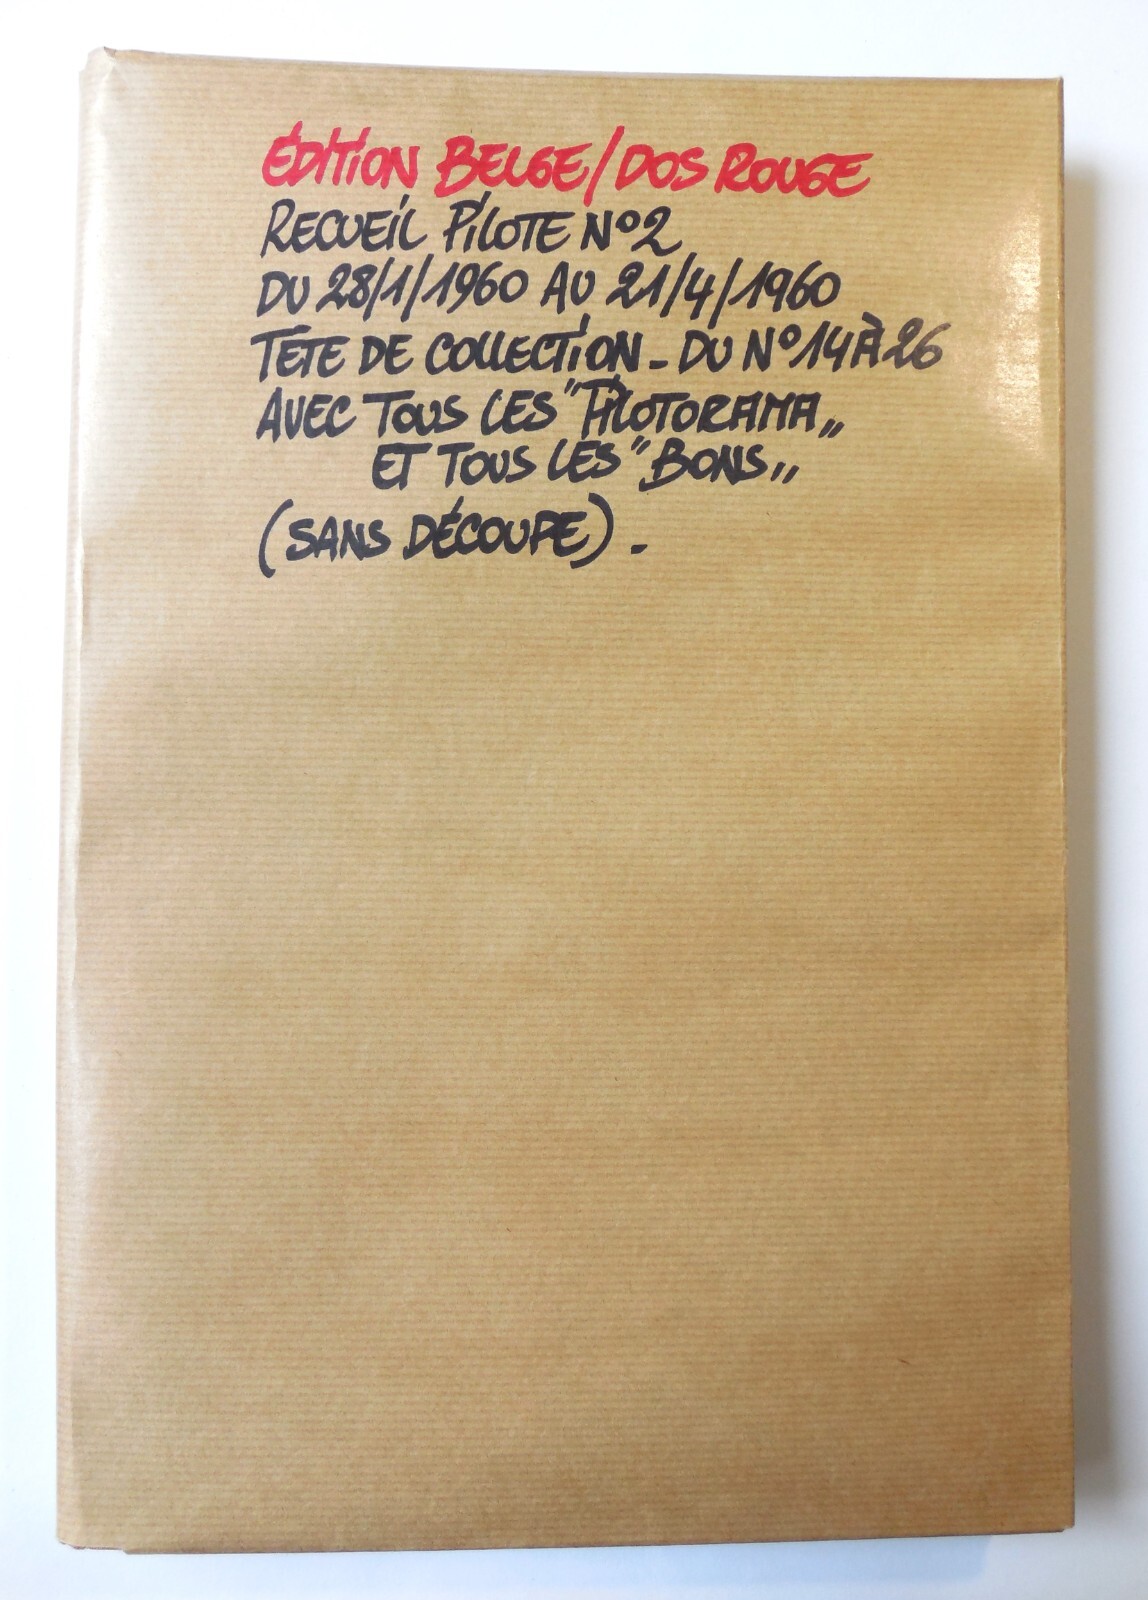 ÉDITION BELGE/DOS ROUGE
RECUEIL PILOTE N°2
DU 28/1/1960 AU 21/4/1960
TETE DE COLLECTION - DU N°14 À 26
AVEC TOUS LES "PILOTORAMA„
ET TOUS LES "BONS„
(SANS DÉCOUPE).